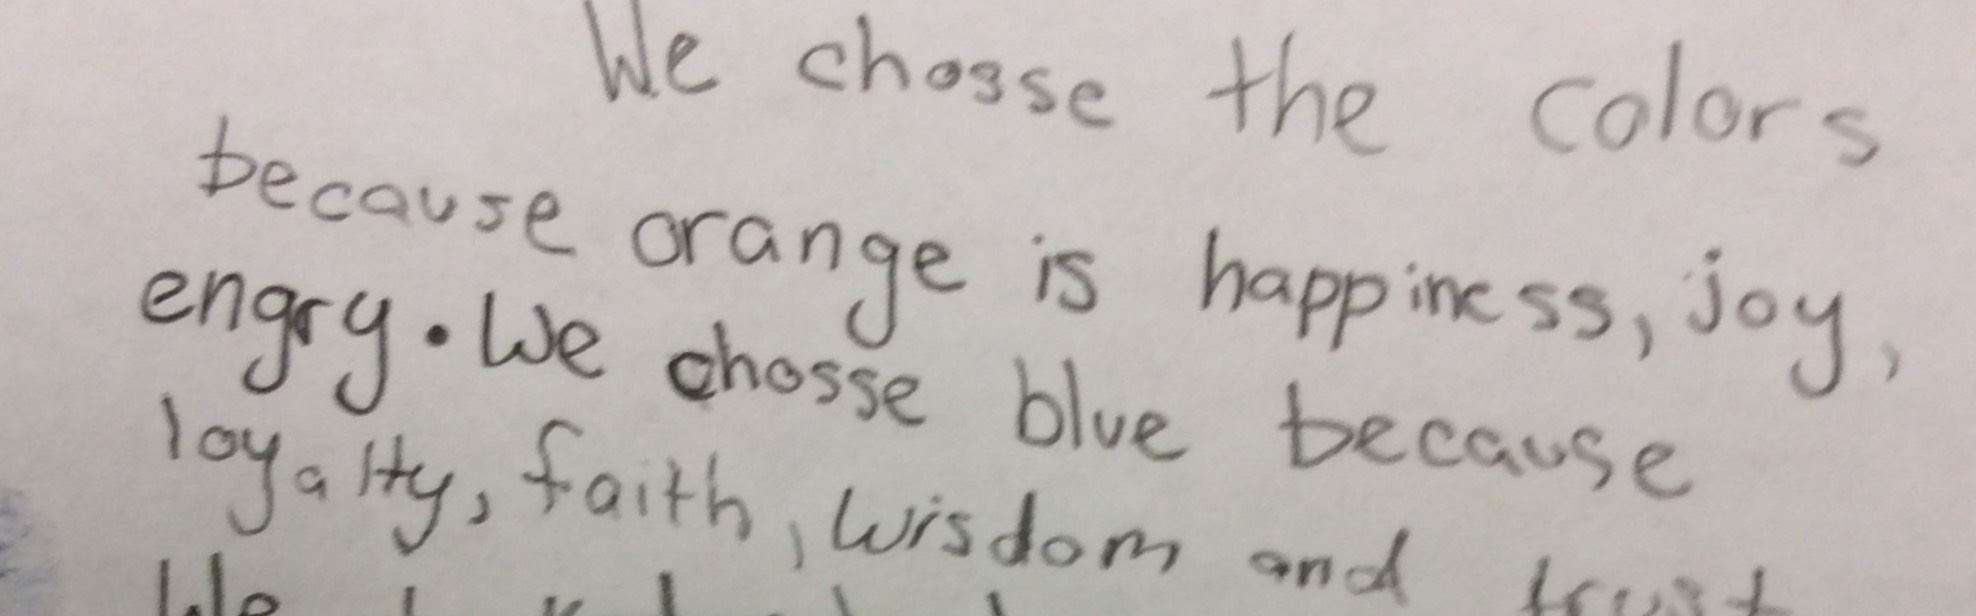 We chosse the colors
because orange is happiness, joy,
engry. We chosse blue because
loyalty, faith, wisdom and trust
We